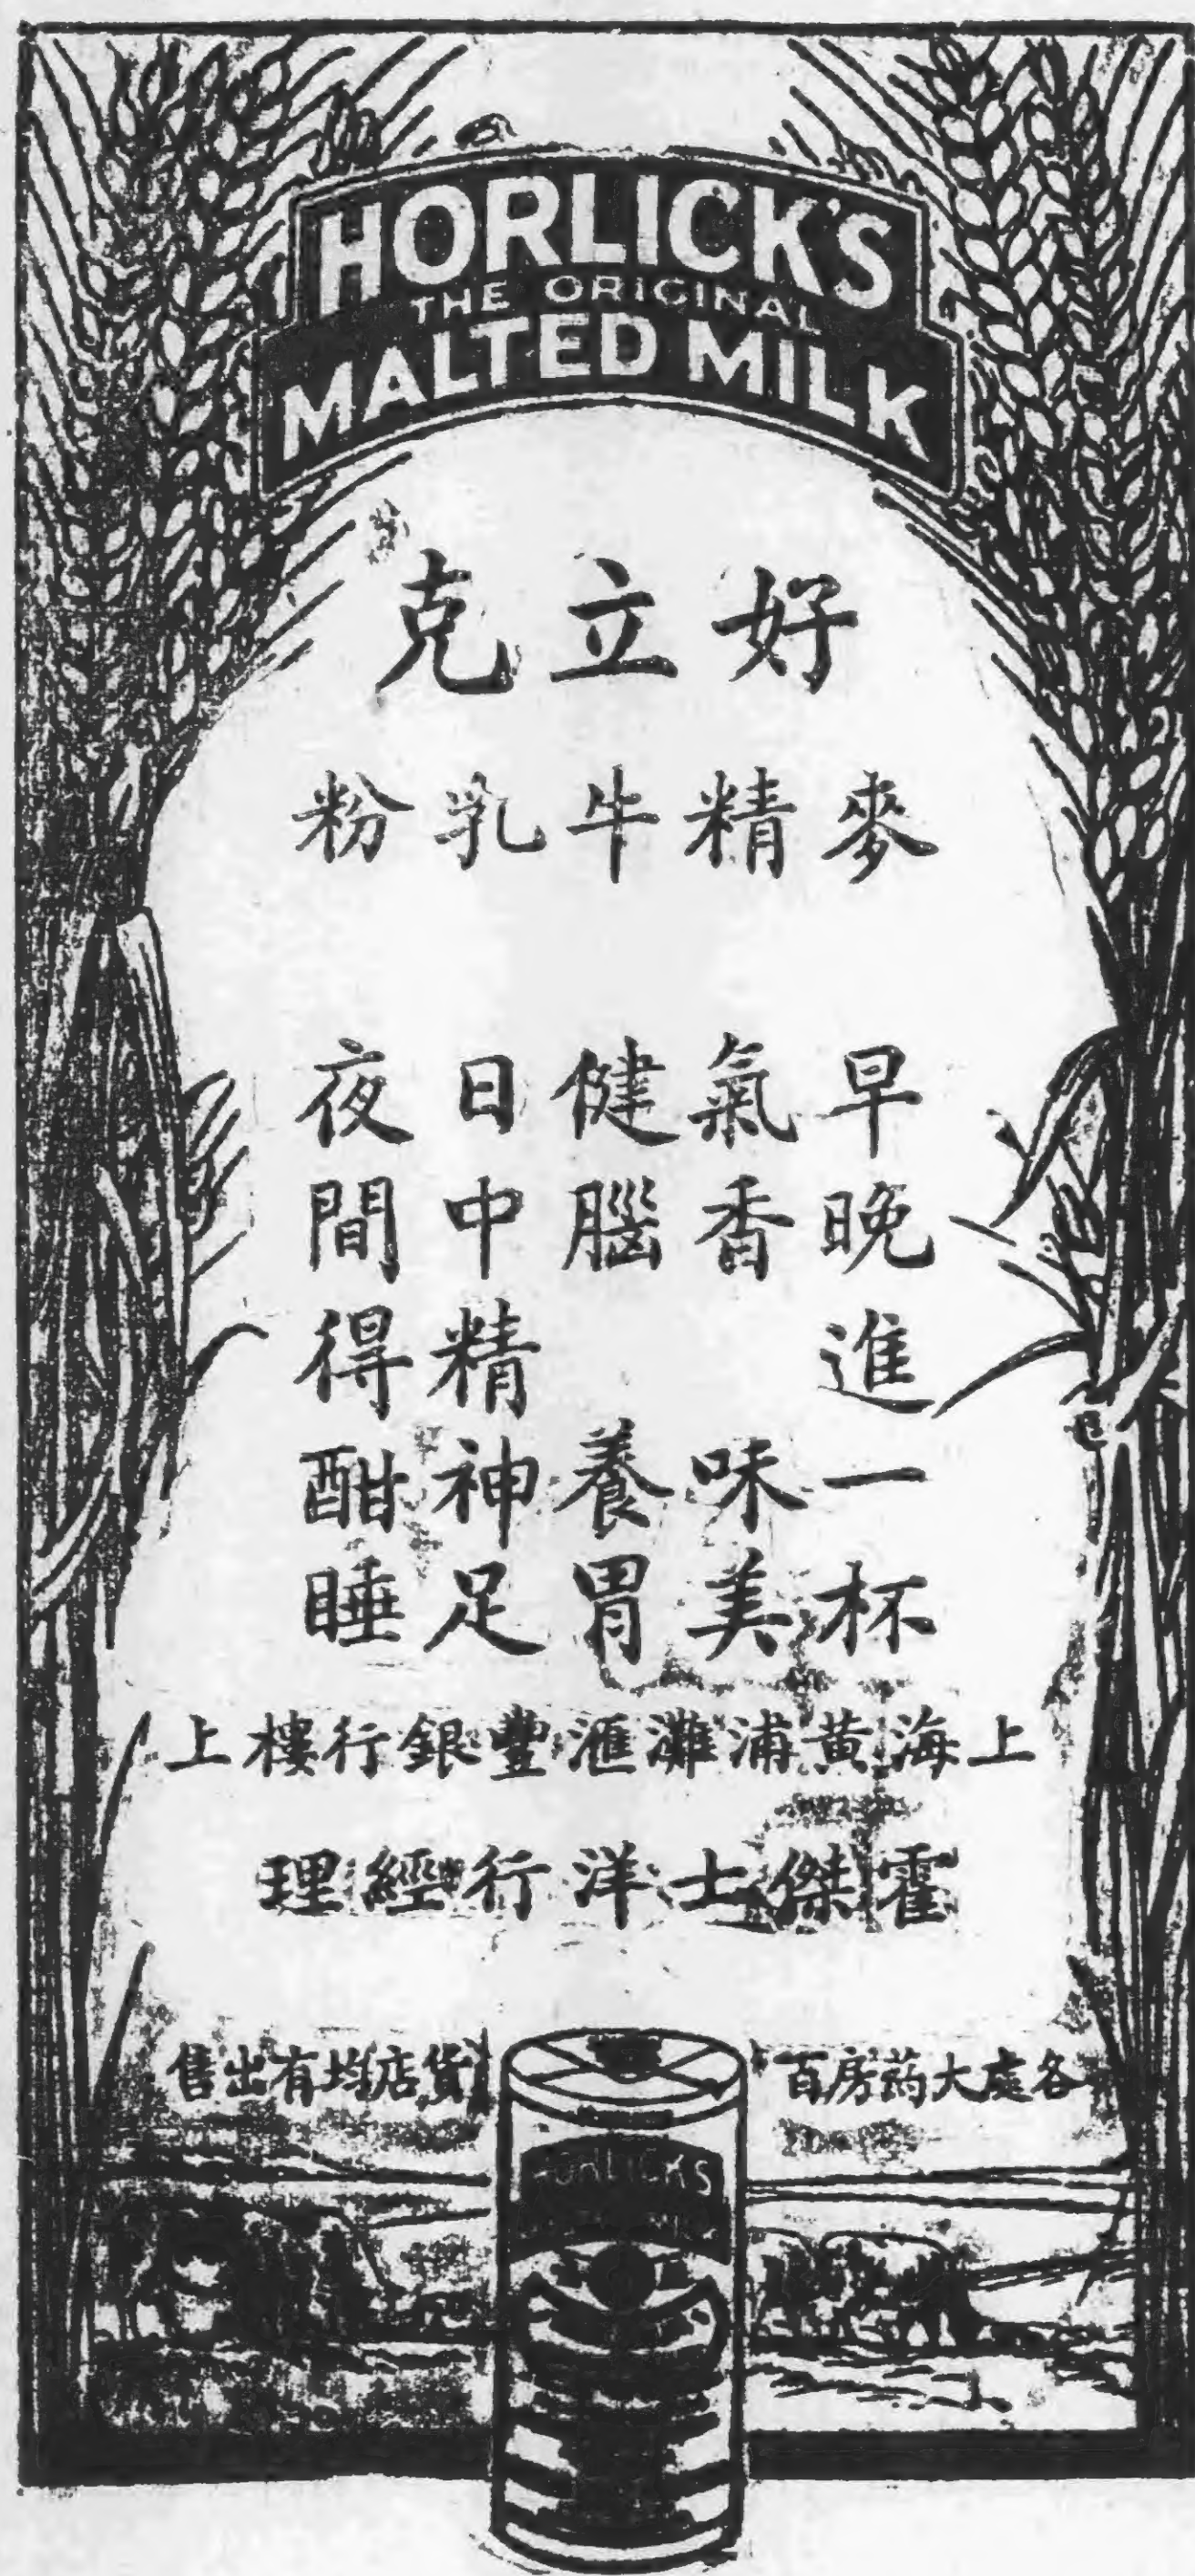 HORLICK'S
THE ORIGINAL
MALTED MILK
好立克
麥精牛乳粉
早晚進一杯
氣香 味美
健腦 養胃
日中精神足
夜間得酣睡
上海黃浦灘滙豐銀行樓上
霍傑士洋行經理
各處大葯房百貨店均有出售
HORLICKS